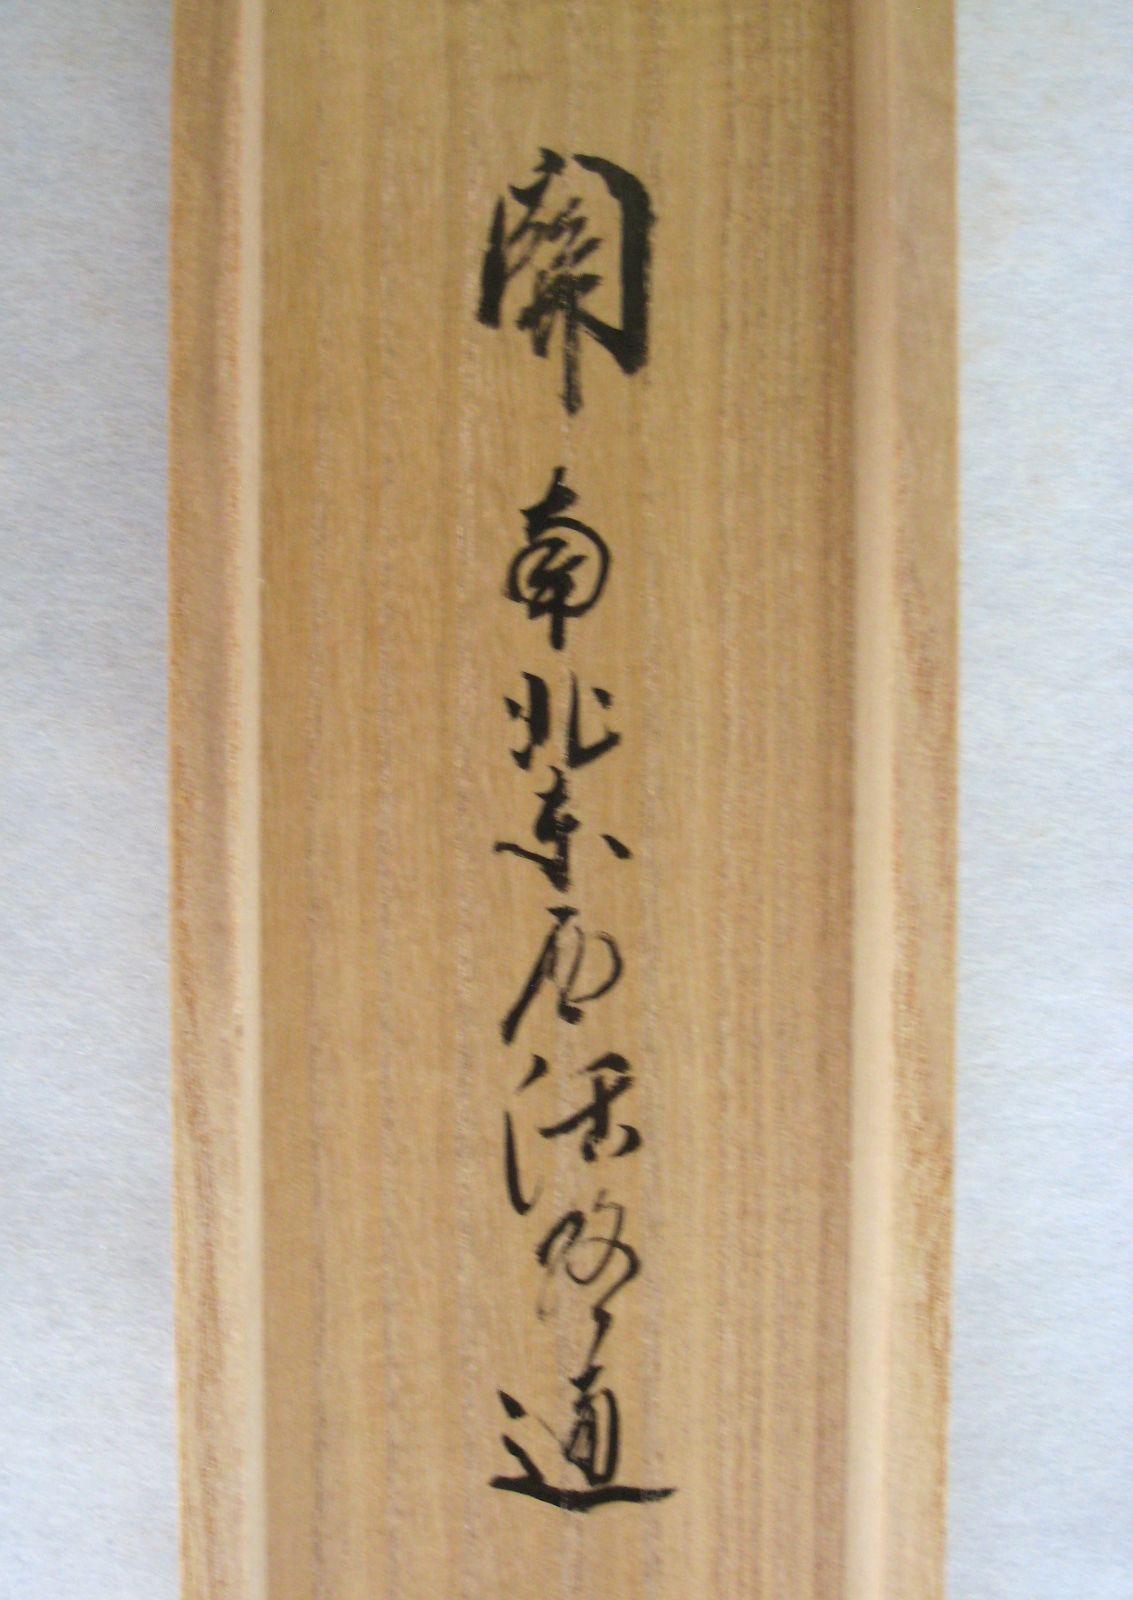 關 南北東西活路通